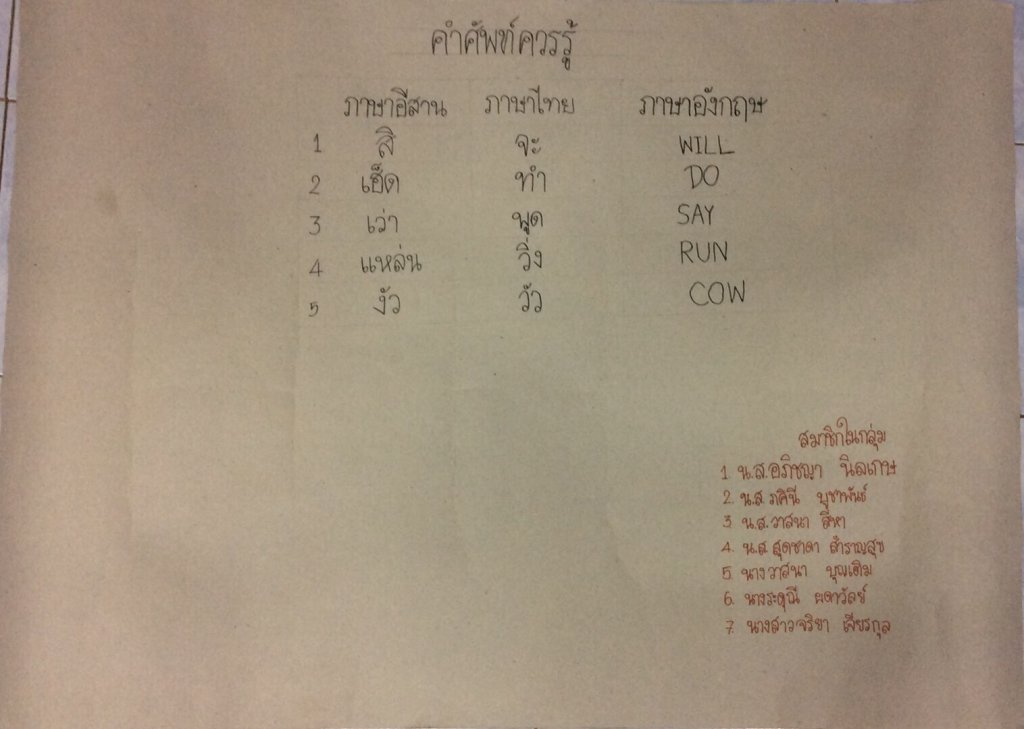 คำศัพท์ควรรู้
ภาษาอีสาน ภาษาไทย ภาษาอังกฤษ
1 สิ จะ WILL
2 เฮ็ด ทำ DO
3 เว่า พูด SAY
4 แหล่น วิ่ง RUN
5 งัว วัว COW
สมาชิกในกลุ่ม
1. น.ส.อภิชญา นิลเกษ
2. น.ส.ภคินี บูชาพันธ์
3. น.ส.วาสนา สีหา
4. น.ส.สุดชาดา สำราญสุข
5. นางวาสนา บุญเติม
6. นางระตุณี ผดาวัลย์
7. นางสาวจริยา เสียรกุล